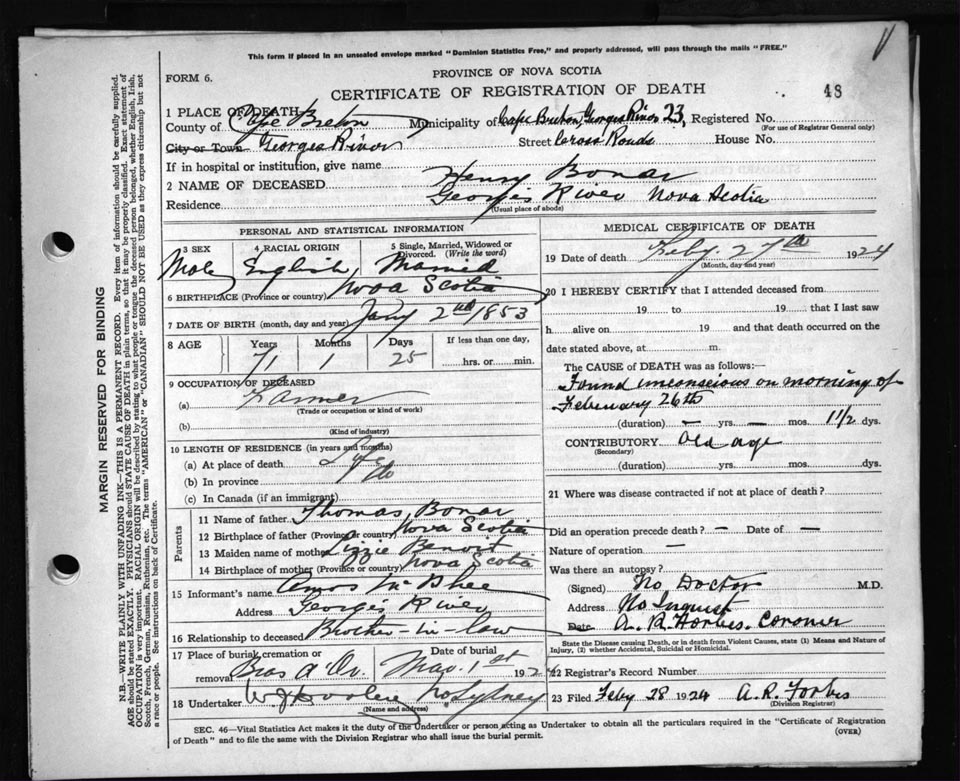 This form if placed in an unsealed envelope marked "Dominion Statistics Free," and properly addressed, will pass through the mails "FREE."
FORM 6.
PROVINCE OF NOVA SCOTIA
CERTIFICATE OF REGISTRATION OF DEATH
48
1 PLACE OF DEATH
County of Cape Breton Municipality of Cape Breton, Georges River 23, Registered No.
(For use of Registrar General only)
City or Town Georges River Street Cross Roads House No.
If in hospital or institution, give name
2 NAME OF DECEASED Henry Bonar
Residence Georges River Nova Scotia
(Usual place of abode)
PERSONAL AND STATISTICAL INFORMATION
3 SEX 4 RACIAL ORIGIN 5 Single, Married, Widowed or Divorced. (Write the word)
Male English Married
6 BIRTHPLACE (Province or country) Nova Scotia
7 DATE OF BIRTH (month, day and year) Jany 2nd 1853
8 AGE Years Months Days If less than one day,
71 1 25 hrs. or min.
9 OCCUPATION OF DECEASED
(a) Farmer
(Trade or occupation or kind of work)
(b)
(Kind of industry)
10 LENGTH OF RESIDENCE (in years and months)
(a) At place of death Life
(b) In province do
(c) In Canada (if an immigrant)
Parents
11 Name of father Thomas Bonar
12 Birthplace of father (Province or country) Nova Scotia
13 Maiden name of mother Lizzie Benoit
14 Birthplace of mother (Province or country) Nova Scotia
15 Informant's name Amos McPhee
Address Georges River
16 Relationship to deceased Brother-in-law
17 Place of burial, cremation or removal Bras d'Or Date of burial Mar. 1st 192
18 Undertaker W. J. No. Sydney
(Name and address)
MEDICAL CERTIFICATE OF DEATH
19 Date of death Feby. 27th 1924
(Month, day and year)
20 I HEREBY CERTIFY that I attended deceased from
19 to 19 that I last saw
h alive on 19 and that death occurred on the
date stated above, at m.
The CAUSE of DEATH was as follows:—
Found unconscious on morning of
Feberuary 26th
(duration) — yrs. — mos. 1 1/2 dys.
CONTRIBUTORY Old age
(Secondary)
(duration) yrs. mos. dys.
21 Where was disease contracted if not at place of death?
Did an operation precede death? — Date of —
Nature of operation —
Was there an autopsy?
(Signed) No Doctor M.D.
Address No Inquest
Date A. R. Forbes. Coroner
State the Disease causing Death, or in death from Violent Causes, state (1) Means and Nature of Injury, (2) whether Accidental, Suicidal or Homicidal.
22 Registrar's Record Number
23 Filed Feby 28 1924 A. R. Forbes
(Division Registrar)
SEC. 46—Vital Statistics Act makes it the duty of the Undertaker or person acting as Undertaker to obtain all the particulars required in the "Certificate of Registration
of Death" and to file the same with the Division Registrar who shall issue the burial permit.
(OVER)
MARGIN RESERVED FOR BINDING
N.B.—WRITE PLAINLY WITH UNFADING INK—THIS IS A PERMANENT RECORD. Every item of information should be carefully supplied.
AGE should be stated EXACTLY. PHYSICIANS should STATE CAUSE OF DEATH in plain terms, so that it may be properly classified. Exact statement of
OCCUPATION is very important. RACIAL ORIGIN will be described by stating to what people or tongue the deceased person belonged, whether English, Irish,
Scotch, French, German, Russian, Ruthenian, etc. The terms "AMERICAN" or "CANADIAN" SHOULD NOT BE USED as they express citizenship but not
a race or people. See instructions on back of Certificate.